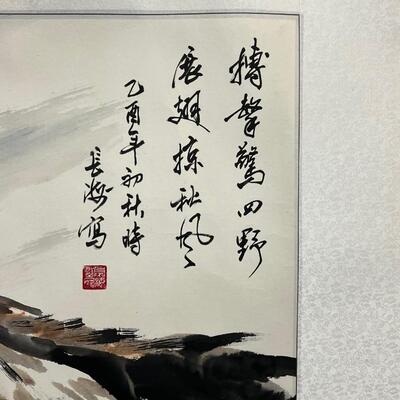 搏擊驚四野
展翅掠秋風
乙酉年初秋時
長海寫